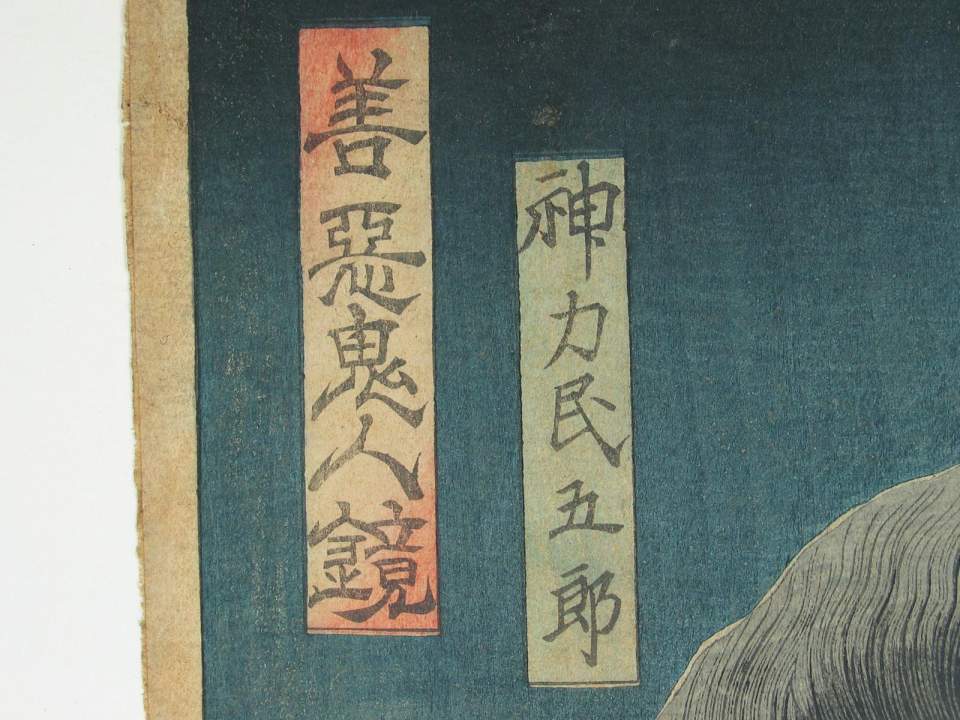 神力民五郎
善惡鬼人鏡